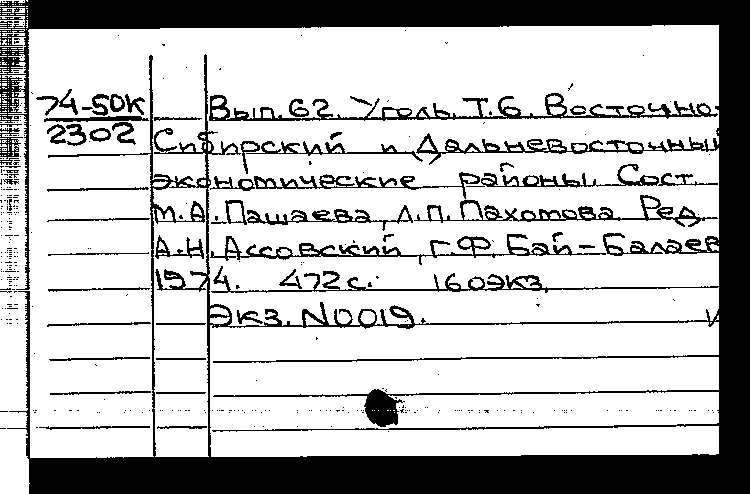 74-50К Вып.62. Уголь. Т.6. Восточно-
2302 Сибирский и Дальневосточный
экономические районы. Сост.
М.А. Пашаева, Л.П. Пахомова. Ред.
А.Н. Ассовский, Г.Ф. Бай-Балаев
1974. 472с. 160экз.
Экз. N0019.